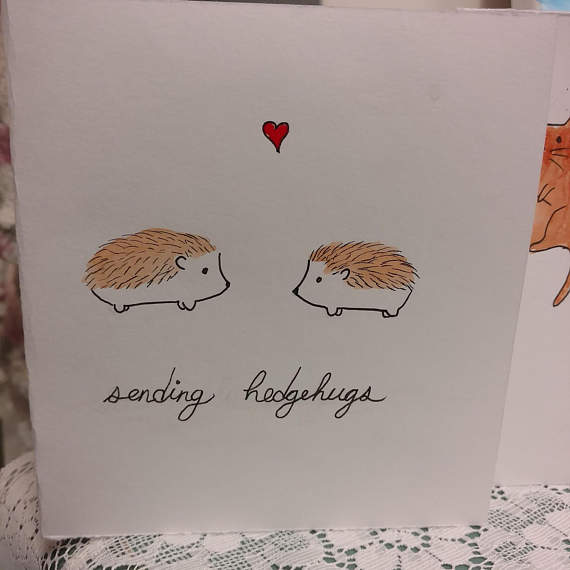 sending hedgehugs